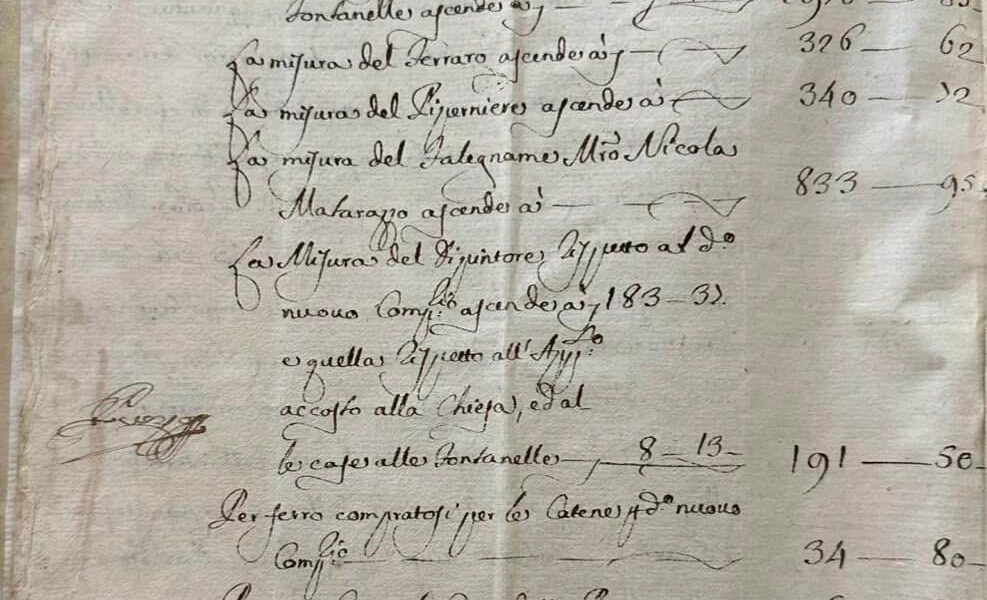 Fontanelle ascende à
La misura del Ferraro ascende à 326 — 62
La misura del Piperniere ascende à 340 — 12
La misura del Falegname Mro Nicola
Matarazzo ascende à 833 — 95
La Misura del Pipuntore rispetto al do
nuovo ascende à 183 — 37
e quella rispetto all'
accosto alla Chiesa, ed al
le case alle Fontanelle 8 — 13 — 191 — 50
Per ferro compratosi per le Catene do nuovo
34 — 80